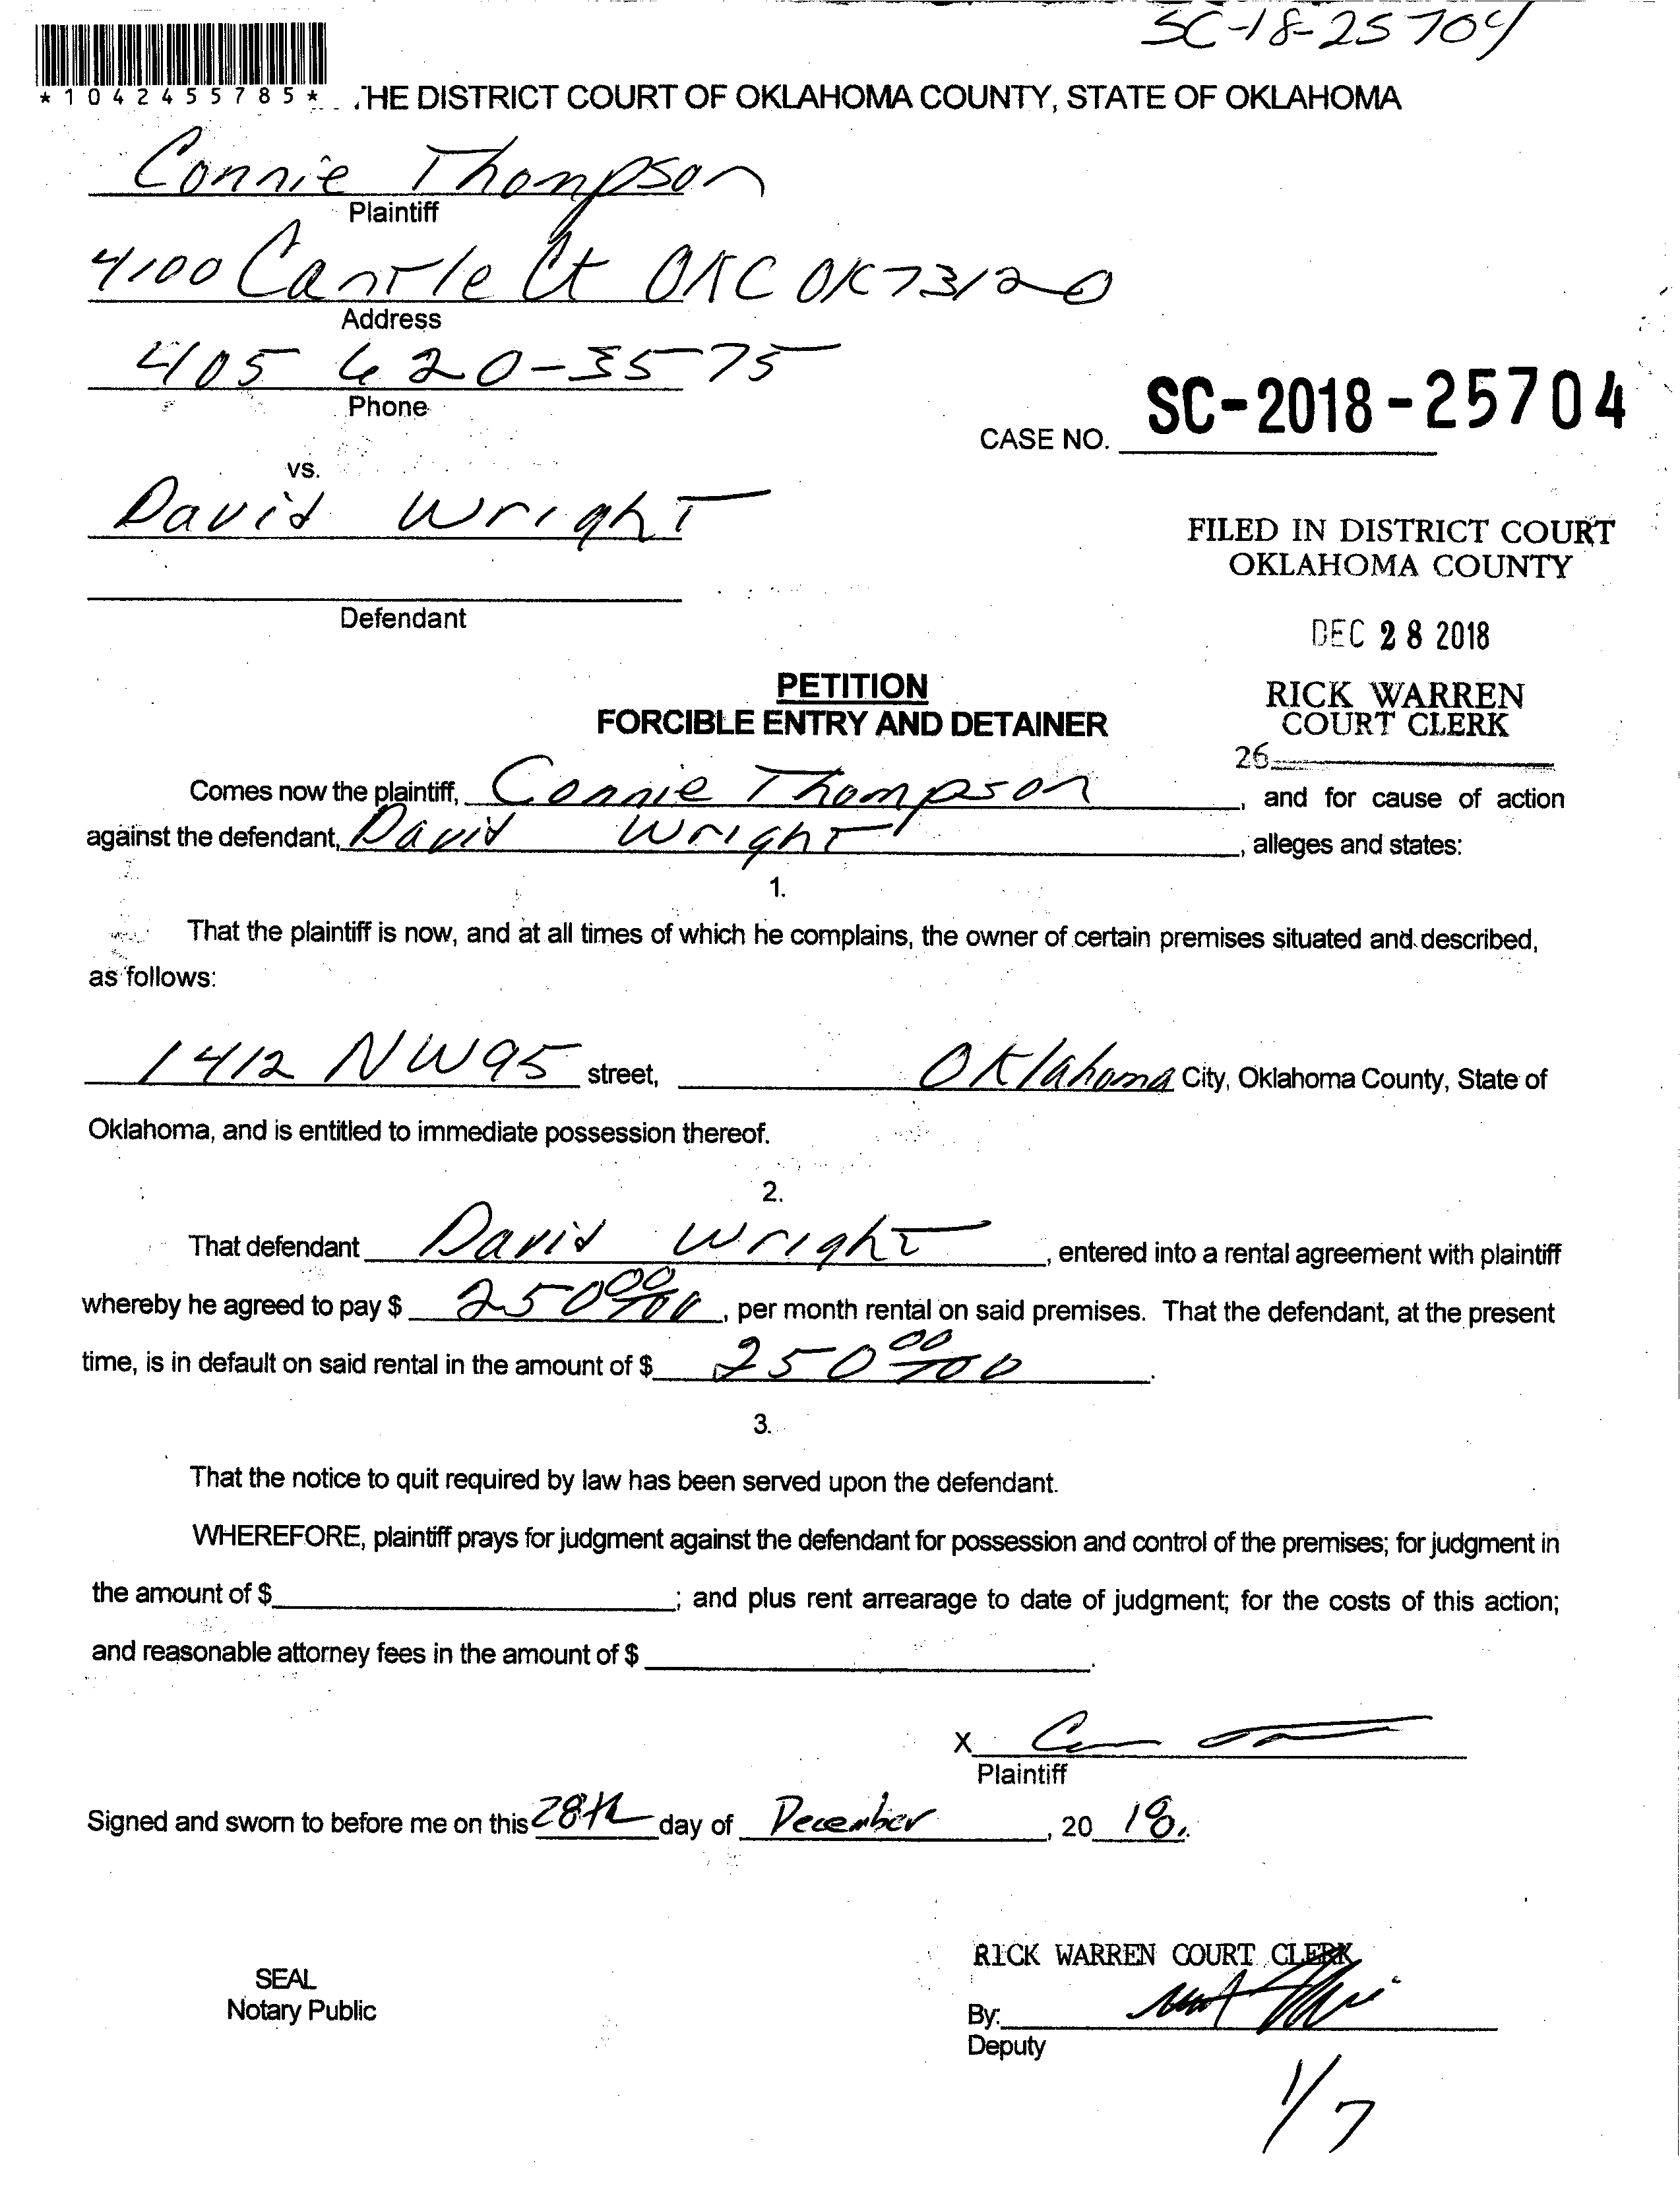 SC-18-25704
*1042455785* THE DISTRICT COURT OF OKLAHOMA COUNTY, STATE OF OKLAHOMA
Connie Thompson
Plaintiff
4100 Canrle Ct OKC OK 73120
Address
405 620-3575
Phone
CASE NO. SC-2018-25704
vs.
David Wright
FILED IN DISTRICT COURT
OKLAHOMA COUNTY
Defendant
DEC 28 2018
PETITION
RICK WARREN
FORCIBLE ENTRY AND DETAINER
COURT CLERK
26
Comes now the plaintiff, Connie Thompson, and for cause of action
against the defendant, David Wright, alleges and states:
1.
That the plaintiff is now, and at all times of which he complains, the owner of certain premises situated and described,
as follows:
1412 NW 95 street, Oklahoma City, Oklahoma County, State of
Oklahoma, and is entitled to immediate possession thereof.
2.
That defendant David Wright, entered into a rental agreement with plaintiff
whereby he agreed to pay $ 250 00/100, per month rental on said premises. That the defendant, at the present
time, is in default on said rental in the amount of $ 250 00/100.
3.
That the notice to quit required by law has been served upon the defendant.
WHEREFORE, plaintiff prays for judgment against the defendant for possession and control of the premises; for judgment in
the amount of $ ; and plus rent arrearage to date of judgment; for the costs of this action;
and reasonable attorney fees in the amount of $ .
X
Plaintiff
Signed and sworn to before me on this 28th day of December, 20 18.
RICK WARREN COURT CLERK
SEAL
Notary Public
By:
Deputy
1/7